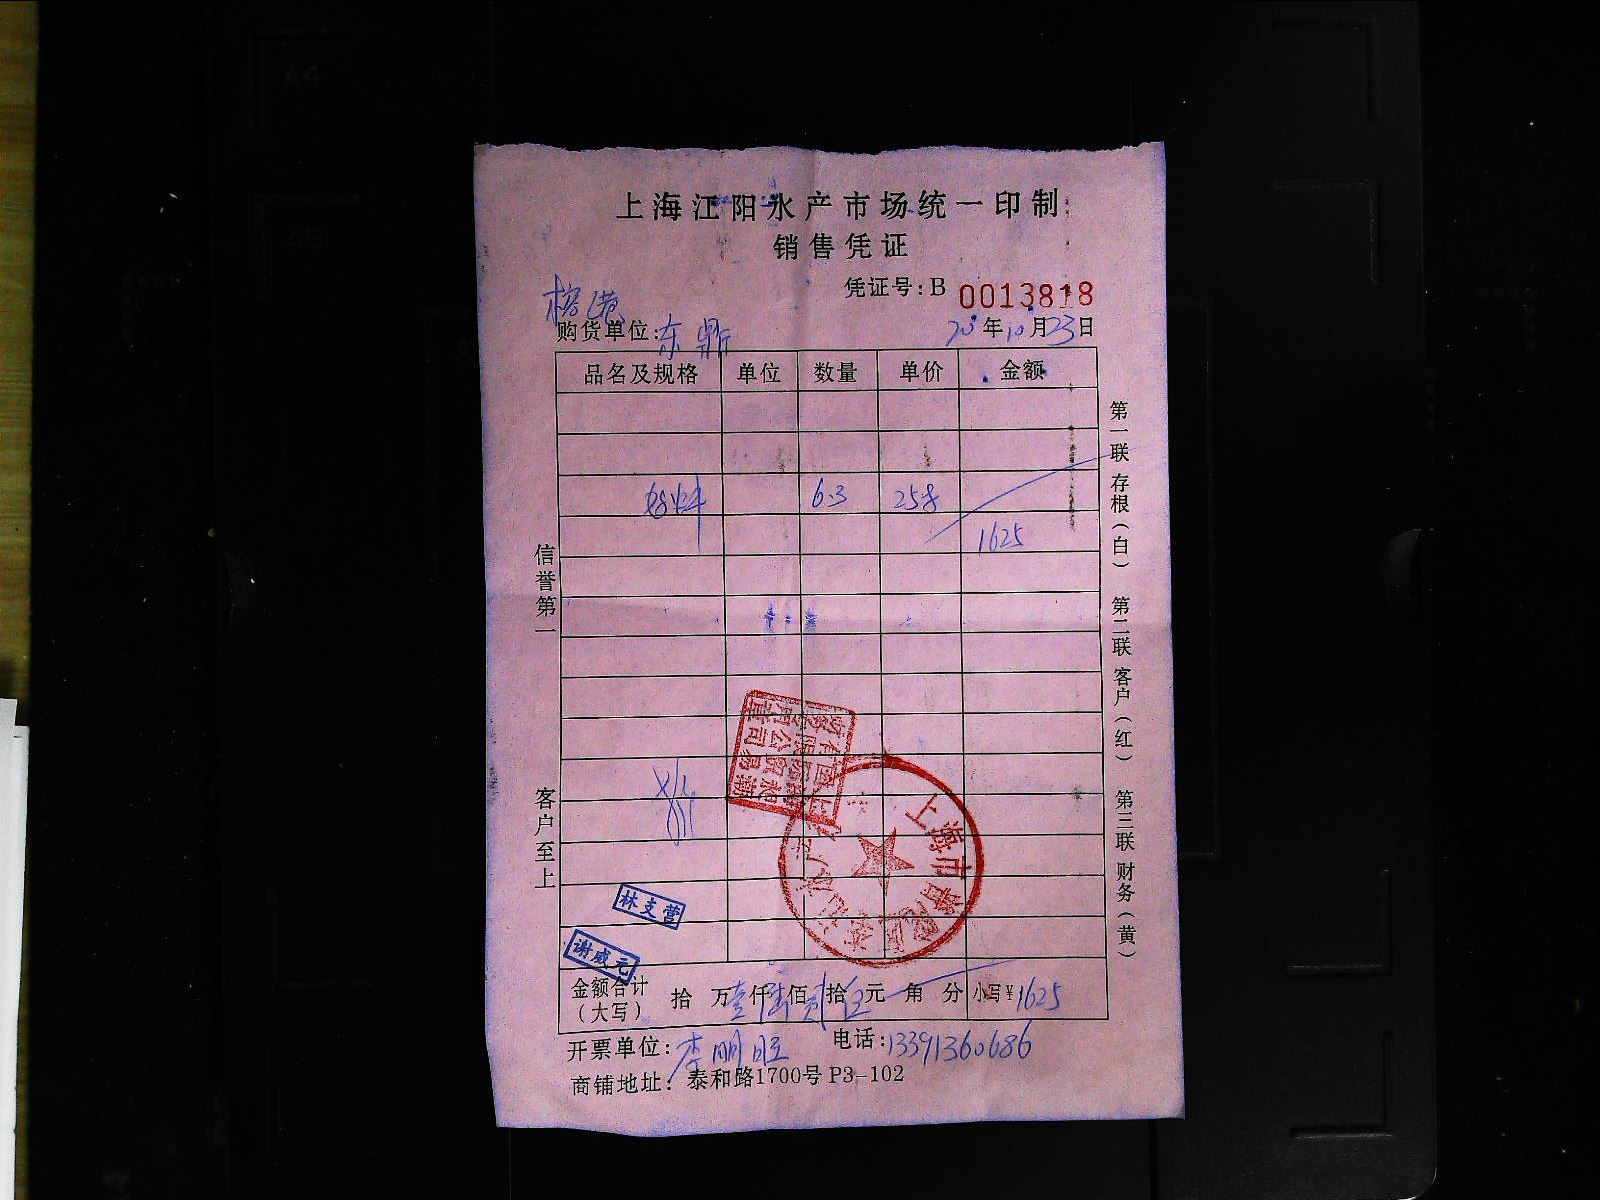 上海江阳水产市场统一印制
销售凭证
凭证号:B 0013818
榕港
购货单位:东鼎
20年10月23日
品名及规格 单位 数量 单价 金额
6.3 258
1625
信誉第一
客户至上
第一联 存根(白) 第二联 客户(红) 第三联 财务(黄)
上海市普陀区
林支营
谢威元
金额合计(大写) 拾 万壹仟陆佰贰拾伍元 角 分 小写¥1625
开票单位:李明旺 电话:13391360686
商铺地址:泰和路1700号P3-102
A4
A5